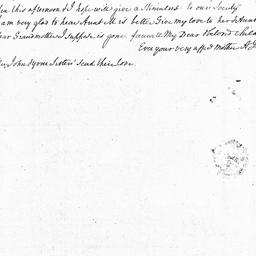 this afternoon & I hope will give a to our Society
I am very glad to hear Aunt M is better Give my love to her & Aunt
your Grandmother I suppose is gone farewell My Dear Beloved Child
Ever your very affec Mother
John & your Sisters send their love